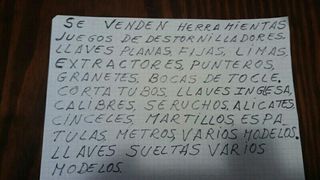 SE VENDEN HERRAMIENTAS
JUEGOS DE DESTORNILLADORES.
LLAVES PLANAS, FIJAS, LIMAS,
EXTRACTORES, PUNTEROS,
GRANETES, BOCAS DE TOCLE,
CORTA TUBOS, LLAVES INGLESA,
CALIBRES, SERUCHOS, ALICATES,
CINCELES, MARTILLOS, ESPA-
TULAS, METROS, VARIOS MODELOS.
LLAVES SUELTAS VARIOS
MODELOS.